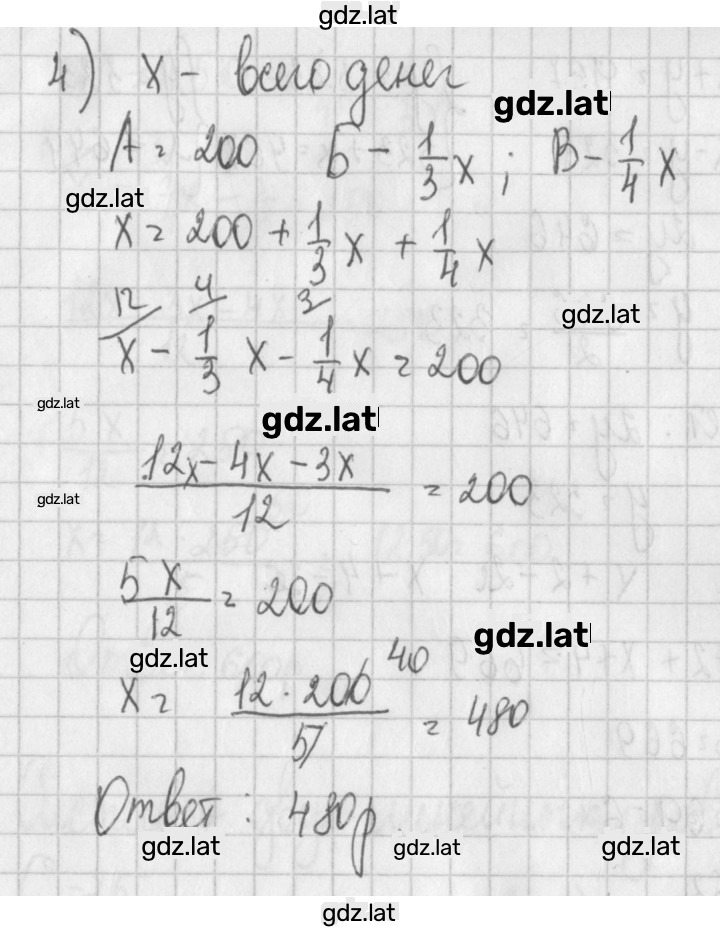 gdz.lat
4) x - всего денег
gdz.lat
A = 200 Б - 1/3 x ; В - 1/4 x
gdz.lat
x = 200 + 1/3 x + 1/4 x
12/ 4/ 3/
gdz.lat
x - 1/3 x - 1/4 x = 200
gdz.lat
gdz.lat
12x - 4x - 3x / 12 = 200
gdz.lat
5x / 12 = 200
gdz.lat
gdz.lat
x = 12 · 200 40 / 5 = 480
Ответ: 480р.
gdz.lat gdz.lat gdz.lat
gdz.lat